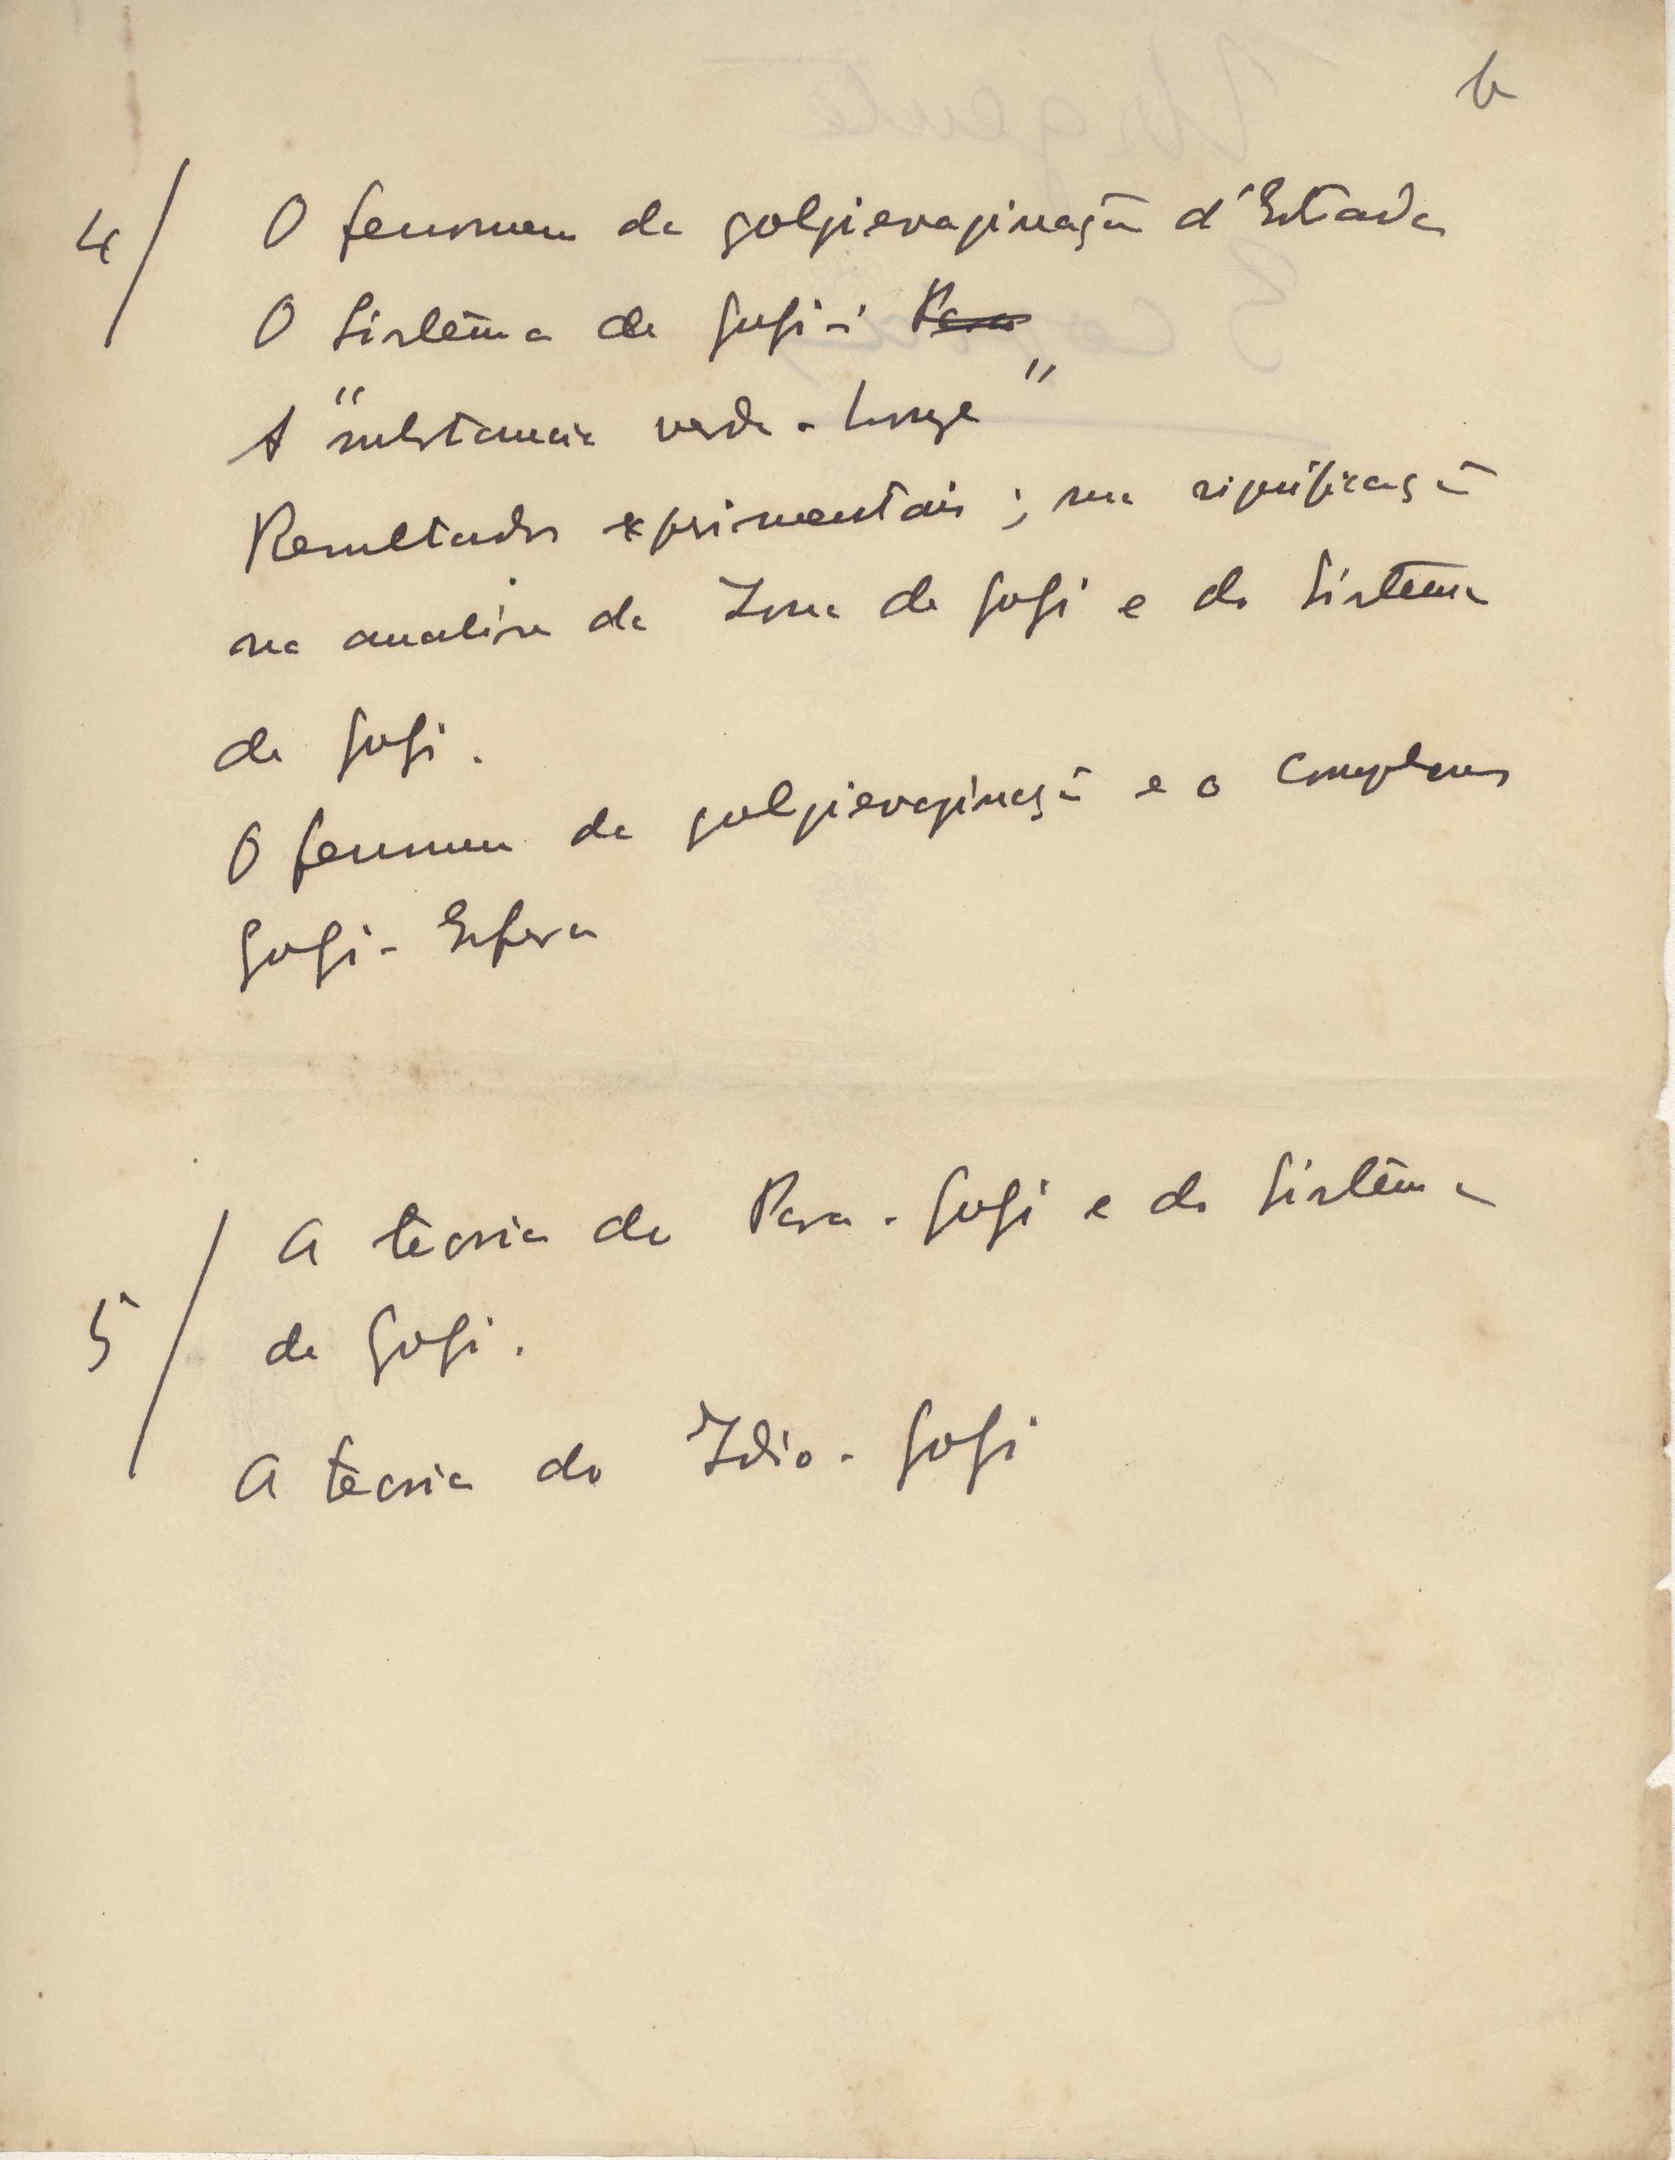 b
4/ O fenomeno da golpievaginação d'Estado
O Sistêma de Golgi-i Para
A "substancia verde-longe"
Resultados exprimentais; sua significação
na analise da Zona de Golgi e do Sistema
de Golgi.
O fenomeno da golpievaginação e o complexus
Golgi-Esfera
5/ A teoria do Para-Golgi e do Sistêma
de Golgi.
A teoria do Idio-Golgi